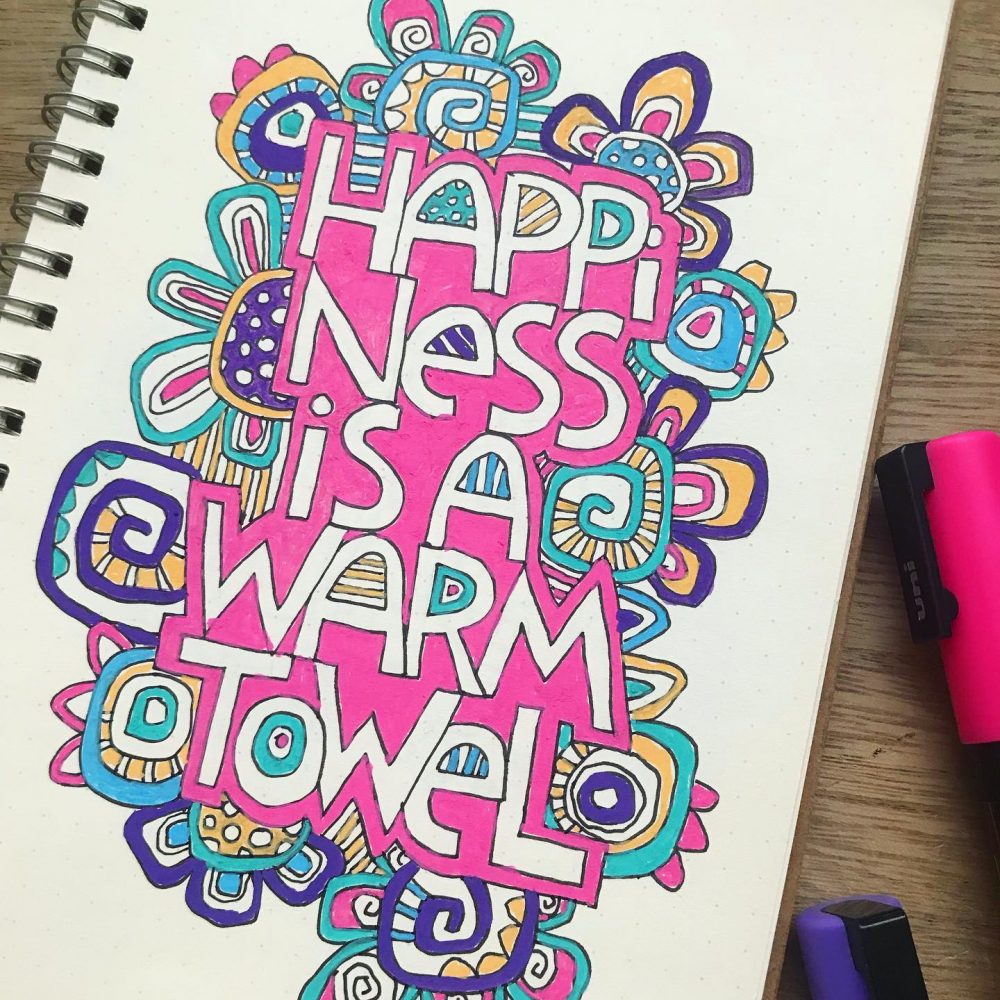 HAPPi
NeSS
iS A
WARM
TOWeL
uni